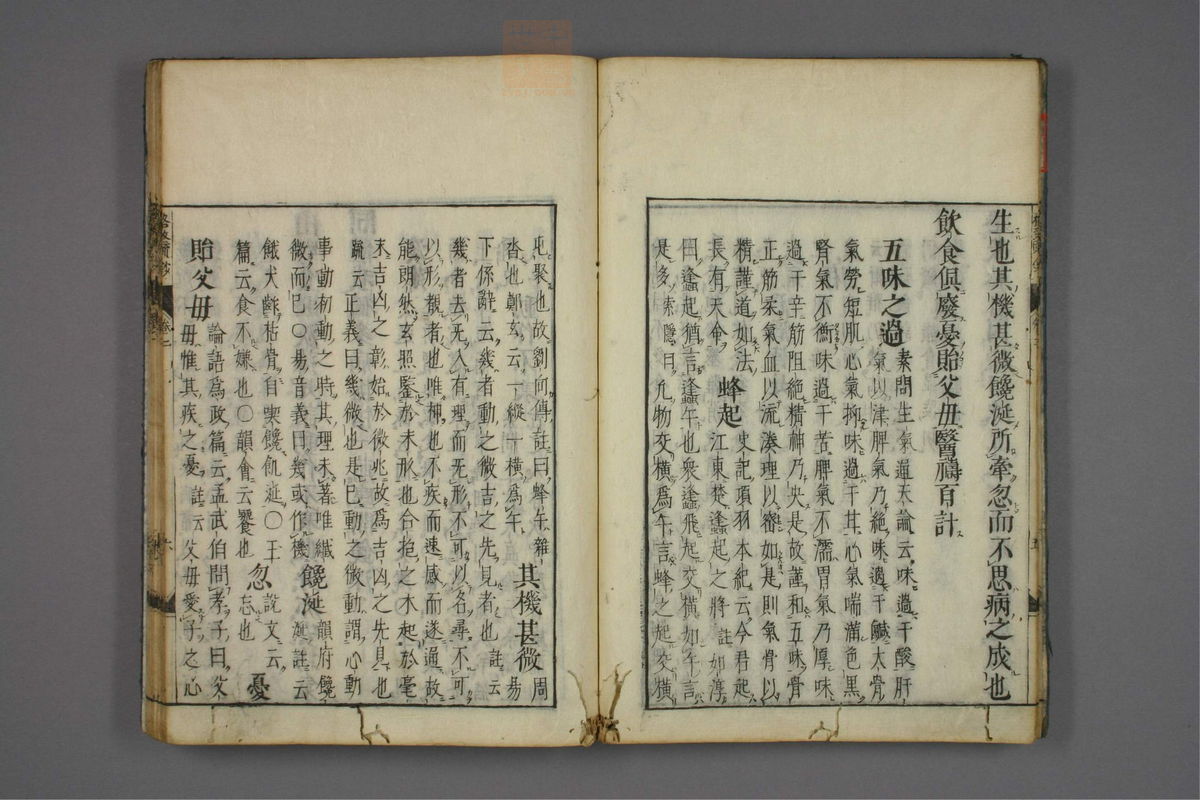 生也其機甚微饞涎所牽忽而不思病之成也
飲食俱廢憂貽父母醫禱百計
五味之過 素問生氣通天論云味過于酸肝
氣以津脾氣乃絶味過于鹹太骨
氣勞短肌心氣抑味過于甘心氣喘滿色黑
腎氣不衡味過于苦脾氣不濡胃氣乃厚味
過于辛筋阻絶精神乃央是故謹和五味骨
正筋柔氣血以流湊理以密如是則氣骨以
精謹道如法
長有天命 蜂起 史記項羽本紀云今君起
江東楚蠭起之將 註如淳
曰蠭起猶言蠭午也衆蠭飛起交横如午言
是多 索隠曰凡物交横爲午言蜂之起交横
屯聚也故劉向傳註曰蜂午雜
沓也鄭玄云一縱一横爲午 其機甚微 周
易
下係辭云幾者動之微吉之先見者也 註云
幾者去无入有理而无形不可以名尋不可
以形覩者也唯神也不疾而速感而遂通故
能朗然玄照鑒於未形也合抱之木起於毫
末吉凶之彰始於微兆故爲吉凶之先見也
疏云正義曰幾微也是已動之微動謂心動
事動初動之時其理未著唯纖
微而已○易音義曰幾或作機 饞涎 韻府饞
涎註云
餓犬齕枯骨自喫饞飢涎○王
篇云食不嫌也○韻會云饕也 忽 説文云
忘也 憂
貽父母 論語爲政篇云孟武伯問孝子曰父
母惟其疾之憂 註云父母愛子之心